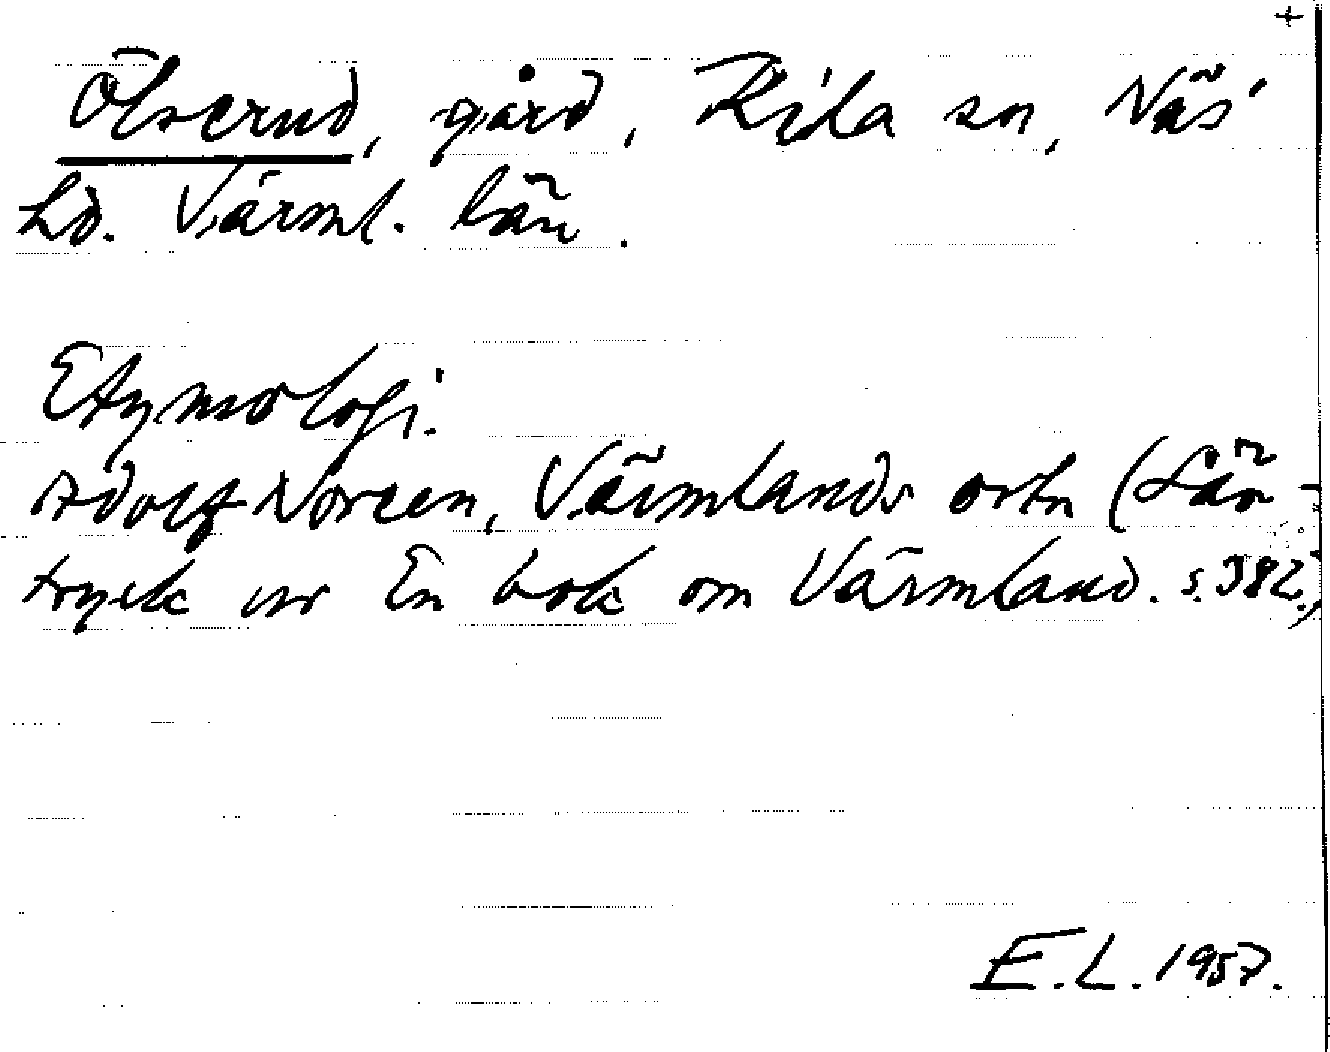 +
Ölserud, gård, Kila sn, Näs
hd. Värml. län.
Etymologi.
Adolf Noreen, Värmlands ortn (Sär-
tryck ur En bok om Värmland. s. 382.)
E.L. 1957.